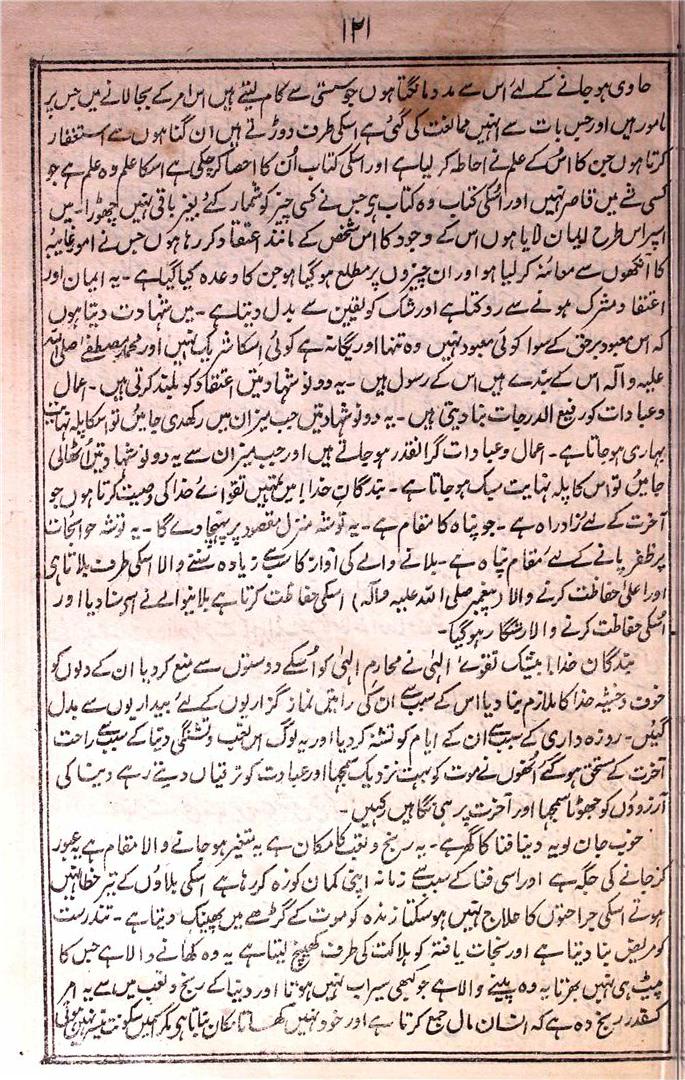 ۱۲۱
حاوی ہوجانے کے لئے اس سے مدد مانگتا ہوں جو سستی سے کام لیتے ہیں اس امر کے بجا لانے میں جس پر
مامور ہیں اور جس بات سے انہیں ممانعت کی گئی ہے اسکی طرف دوڑتے ہیں ان گناہوں سے استغفار
کرتا ہوں جن کا اُس کے علم نے احاطہ کر لیا ہے اور اسکی کتاب اُن کا احصا کرچکی ہے اسکا علم وہ علم ہے جو
کسی شے میں قاصر نہیں اور اُسکی کتاب وہ کتاب ہی جس نے کسی چیز کو شمار کئے بغیر باقی نہیں چھوڑا۔ میں
اسپر اس طرح ایمان لایا ہوں اس کے وجود کا اس شخص کے مانند اعتقاد کر رہا ہوں جس نے امور غایبہ
کا آنکھوں سے معائنہ کر لیا ہو اور ان چیزوں پر مطلع ہو گیا ہو جن کا وعدہ کیا گیا ہے۔ یہ ایمان اور
اعتقاد مشرک ہونے سے روکتا ہے اور شک کو یقین سے بدل دیتا ہے۔ میں شہادت دیتا ہوں
کہ اس معبود برحق کے سوا کوئی معبود نہیں وہ تنہا اور یگانہ ہے کوئی اسکا شریک نہیں اور محمد مصطفےٰ صلی اللہ
علیہ و آلہ اس کے بندے ہیں اس کے رسول ہیں۔ یہ دونو شہادتیں اعتقاد کو بلند کرتی ہیں۔ اعمال
و عبادات کو رفیع الدرجات بنا دیتی ہیں۔ یہ دونو شہادتیں جب میزان میں رکھدی جائیں تو اسکا پلہ نہایت
بہاری ہوجاتا ہے۔ اعمال و عبادات گرانقدر ہو جاتے ہیں اور جب میزان سے یہ دونو شہادتیں اُٹھالی
جائیں تو اس کا پلہ نہایت سبک ہوجاتا ہے۔ بندگانِ خدا! میں تمہیں تقوائے خدا کی وصیت کرتا ہوں جو
آخرت کے لئے زاد راہ ہے۔ جو پناہ کا مقام ہے۔ یہ توشہ منزل مقصود پر پہنچا دے گا۔ یہ توشہ حوائجات
پر ظفر پانے کے لئے مقام پناہ ہے۔ بلانے والے کی آواز کا سب سے زیادہ سننے والا اسکی طرف بلاتا ہی
اور اعلیٰ حفاظت کرنے والا (پیغمبر صلی اللہ علیہ و آلہ) اسکی حفاظت کرتا ہے بلا نیوالے نے اسے سنا دیا اور
اُسکی حفاظت کرنے والا رستگار ہو گیا۔
بندگان خدا! بیشک تقوےٰ الٰہی نے محارم الٰہی کو اُسکے دوستوں سے منع کر دیا ان کے دلوں کو
خوف و خشیہ خدا کا ملازم بنا دیا اس کے سبب سے ان کی راتیں نماز گزاریوں کے لئے بیداریوں سے بدل
گئیں۔ روزہ داری کے سبب سے ان کے ایام کو تشنہ کر دیا اور یہ لوگ اس تعب و تشنگی دنیا کے سبب سے راحت
آخرت کے مستحق ہو گئے اُنھوں نے موت کو بہت نزدیک سمجھا اور عبادت کو ترقیاں دیتے رہے دنیا کی
آرزووں کو جھوٹا سمجھا اور آخرت پر ہی نگاہیں رکہیں۔
خوب جان لو یہ دنیا فنا کا گھر ہے۔ یہ رنج و تعب کا مکان ہے یہ متغیر ہو جانے والا مقام ہے یہ عبور
کر جانے کی جگہ ہے اور اسی فنا کے سبب سے زمانہ اپنی کمان کو زہ کر رہا ہے اسکی بلاؤں کے تیر خطا نہیں
ہوتے اسکی جراحتوں کا علاج نہیں ہوسکتا زندہ کو موت کے گڑھے میں پھینک دیتا ہے۔ تندرست
کو مریض بنا دیتا ہے اور نجات یافتہ کو ہلاکت کی طرف کھینچ لیتا ہے یہ وہ کھانے والا ہے جس کا
پیٹ ہی نہیں بھرتا یہ وہ پینے والا ہے جو کبھی سیراب نہیں ہوتا اور دنیا کے رنج و تعب میں سے یہ امر
کسقدر رنج دہ ہے کہ انسان مال جمع کرتا ہے اور خود نہیں کھاتا مکان بناتا ہی مگر اسمیں سکونت میسر نہیں ہوتی